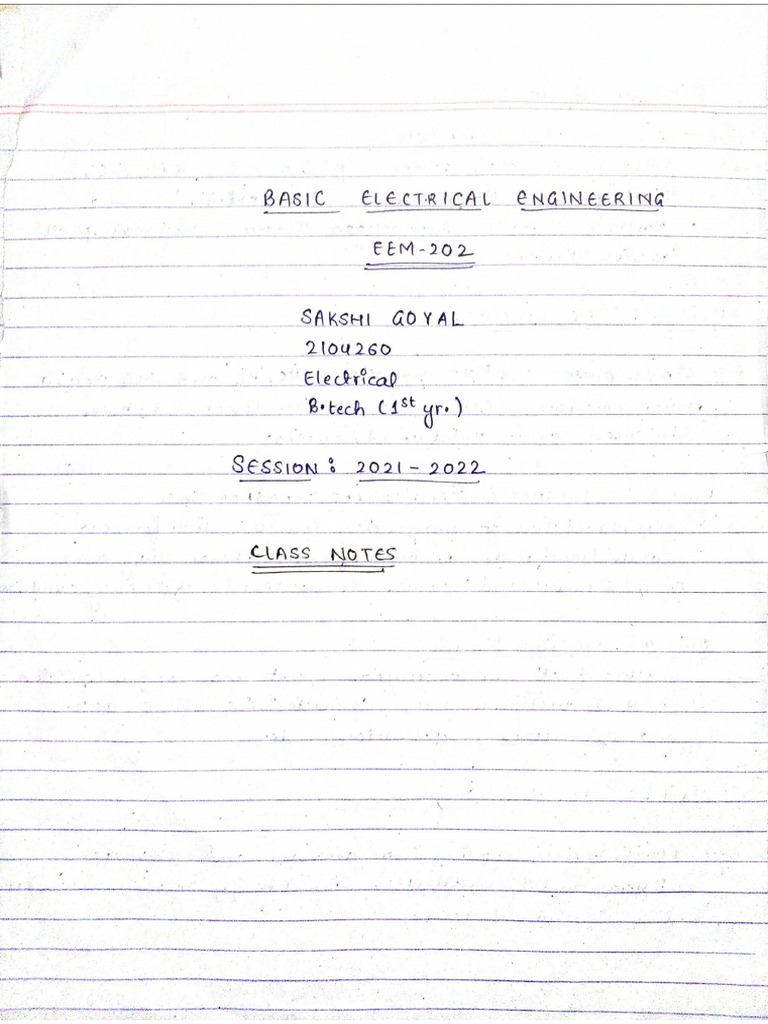 BASIC ELECTRICAL ENGINEERING
EEM-202
SAKSHI GOYAL
2104260
Electrical
B.tech (1st yr.)
SESSION: 2021-2022
CLASS NOTES